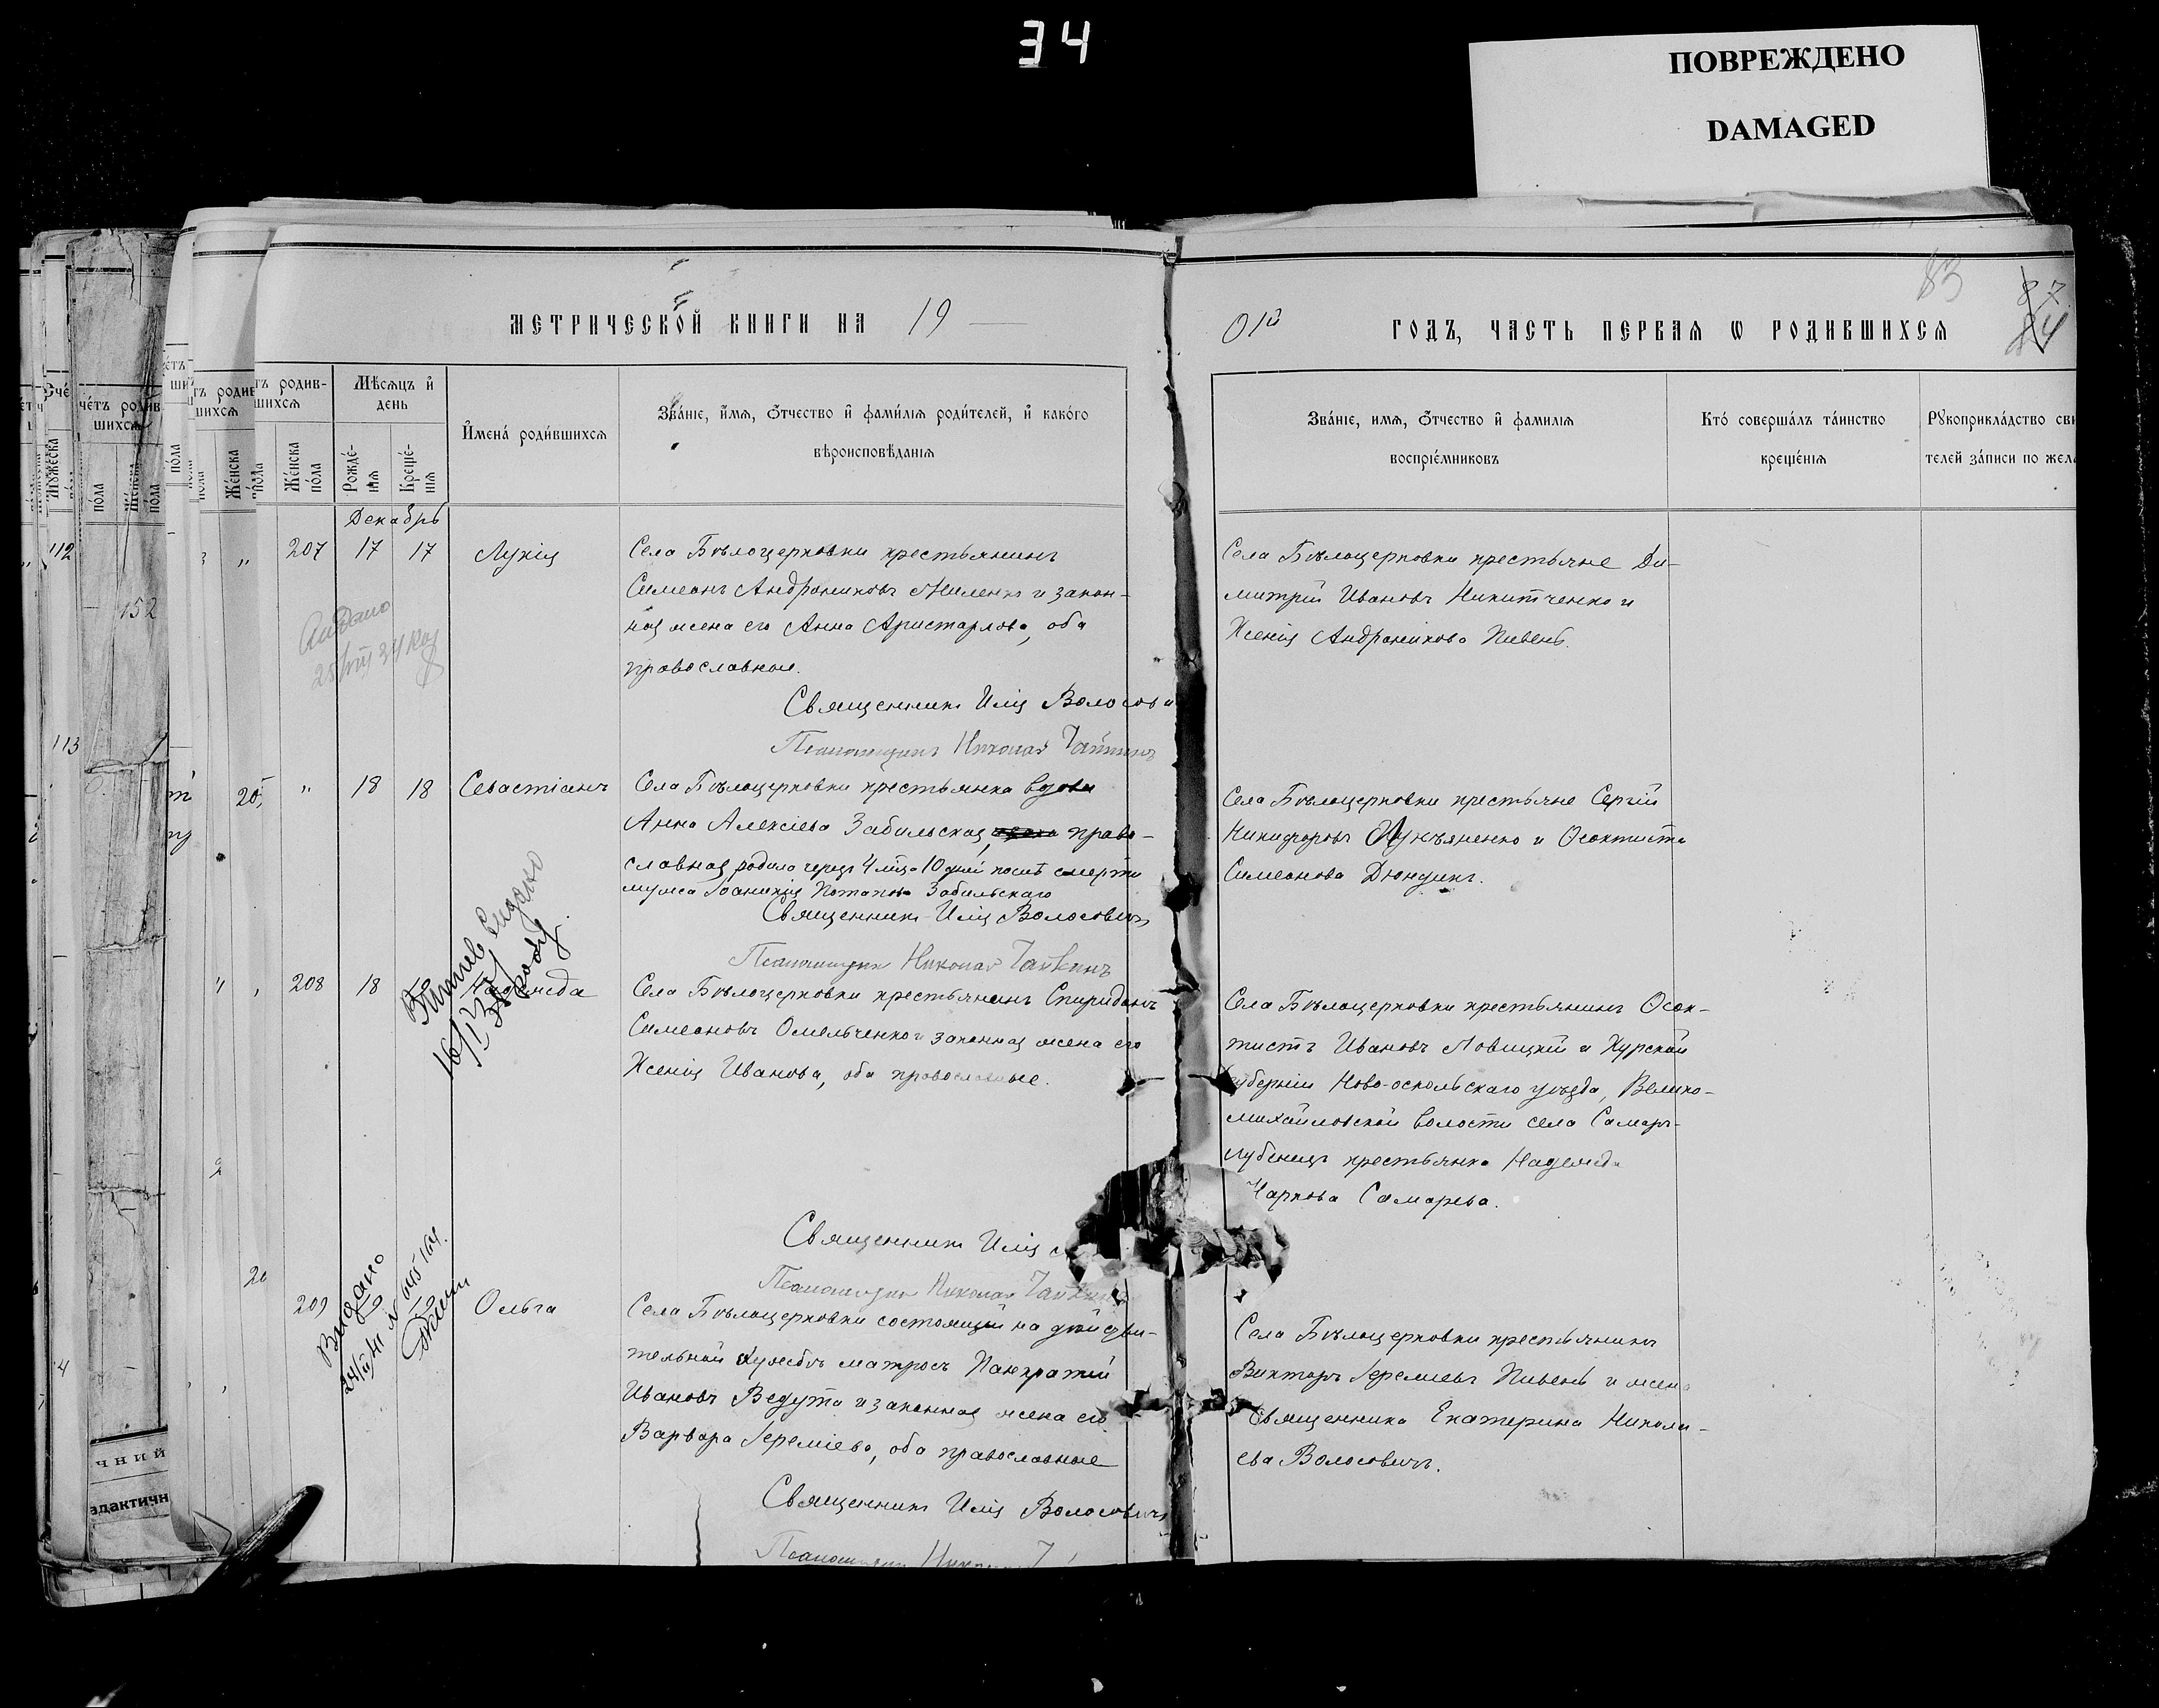 34
ПОВРЕЖДЕНО
DAMAGED
83
МЕТРИЧЕСКОЙ КНИГИ НА 19
01й ГОДЪ, ЧАСТЬ ПЕРВАЯ Ѡ РОДИВШИХСЯ
Мѣсяцъ и день
Женска пола
Рожденія
Крещенія
Имена родившихся
Званіе, имя, отчество и фамилія родителей, и какого
вѣроисповѣданія
Званіе, имя, отчество и фамилія
воспріемниковъ
Кто совершалъ таинство
крещенія
Рукоприкладство сви
телей записи по жела
Декабрь
207 17 17 Лукія
Села Бѣлоцерковки крестьянинъ
Симеонъ Андрониковъ Жиленко и закон-
ная жена его Анна Аристархова, оба
православные.
Священникъ Илія Волосови
Псаломщикъ Николай Чайкинъ
Села Бѣлоцерковки крестьяне Ди-
митрій Ивановъ Никитченко и
Ксенія Андроникова Пивень.
112
152
113
" 18 18 Севастіанъ
Села Бѣлоцерковки крестьянка вдова
Анна Алексіева Забильская, право-
славная родила черезъ 4 м-ца 10 дней послѣ смерти
мужа Іоанникія Потапова Забильскаго
Священникъ Илія Волосовичъ
Псаломщикъ Николай Чайкинъ
Села Бѣлоцерковки крестьяне Сергій
Никифоровъ Лукъяненко и Ѳеоктиста
Симеонова Дюндикъ.
208 18 Надежда
Села Бѣлоцерковки крестьянинъ Спиридонъ
Симеоновъ Омельченко и законная жена его
Ксенія Иванова, оба православные.
Священникъ Илія
Псаломщикъ Николай Чайкинъ
Села Бѣлоцерковки крестьянинъ Ѳеок-
тистъ Ивановъ Ловицкій и Курской
губерніи Ново-оскольскаго уѣзда, Велико-
михайловской волости села
крестьянка Надежда
Карпова Самарева.
Видано
209 Ольга
Села Бѣлоцерковки состоящій на дѣйстви-
тельной службѣ матросъ Панкратій
Ивановъ Ведута и законная жена его
Варвара Іереміева, оба православные
Священникъ Илія Волосовичъ
Псаломщикъ
Села Бѣлоцерковки крестьянинъ
Викторъ Іереміевъ Пивень и жена
священника Екатерина Никола-
ева Волосовичъ.
чний
адактичн